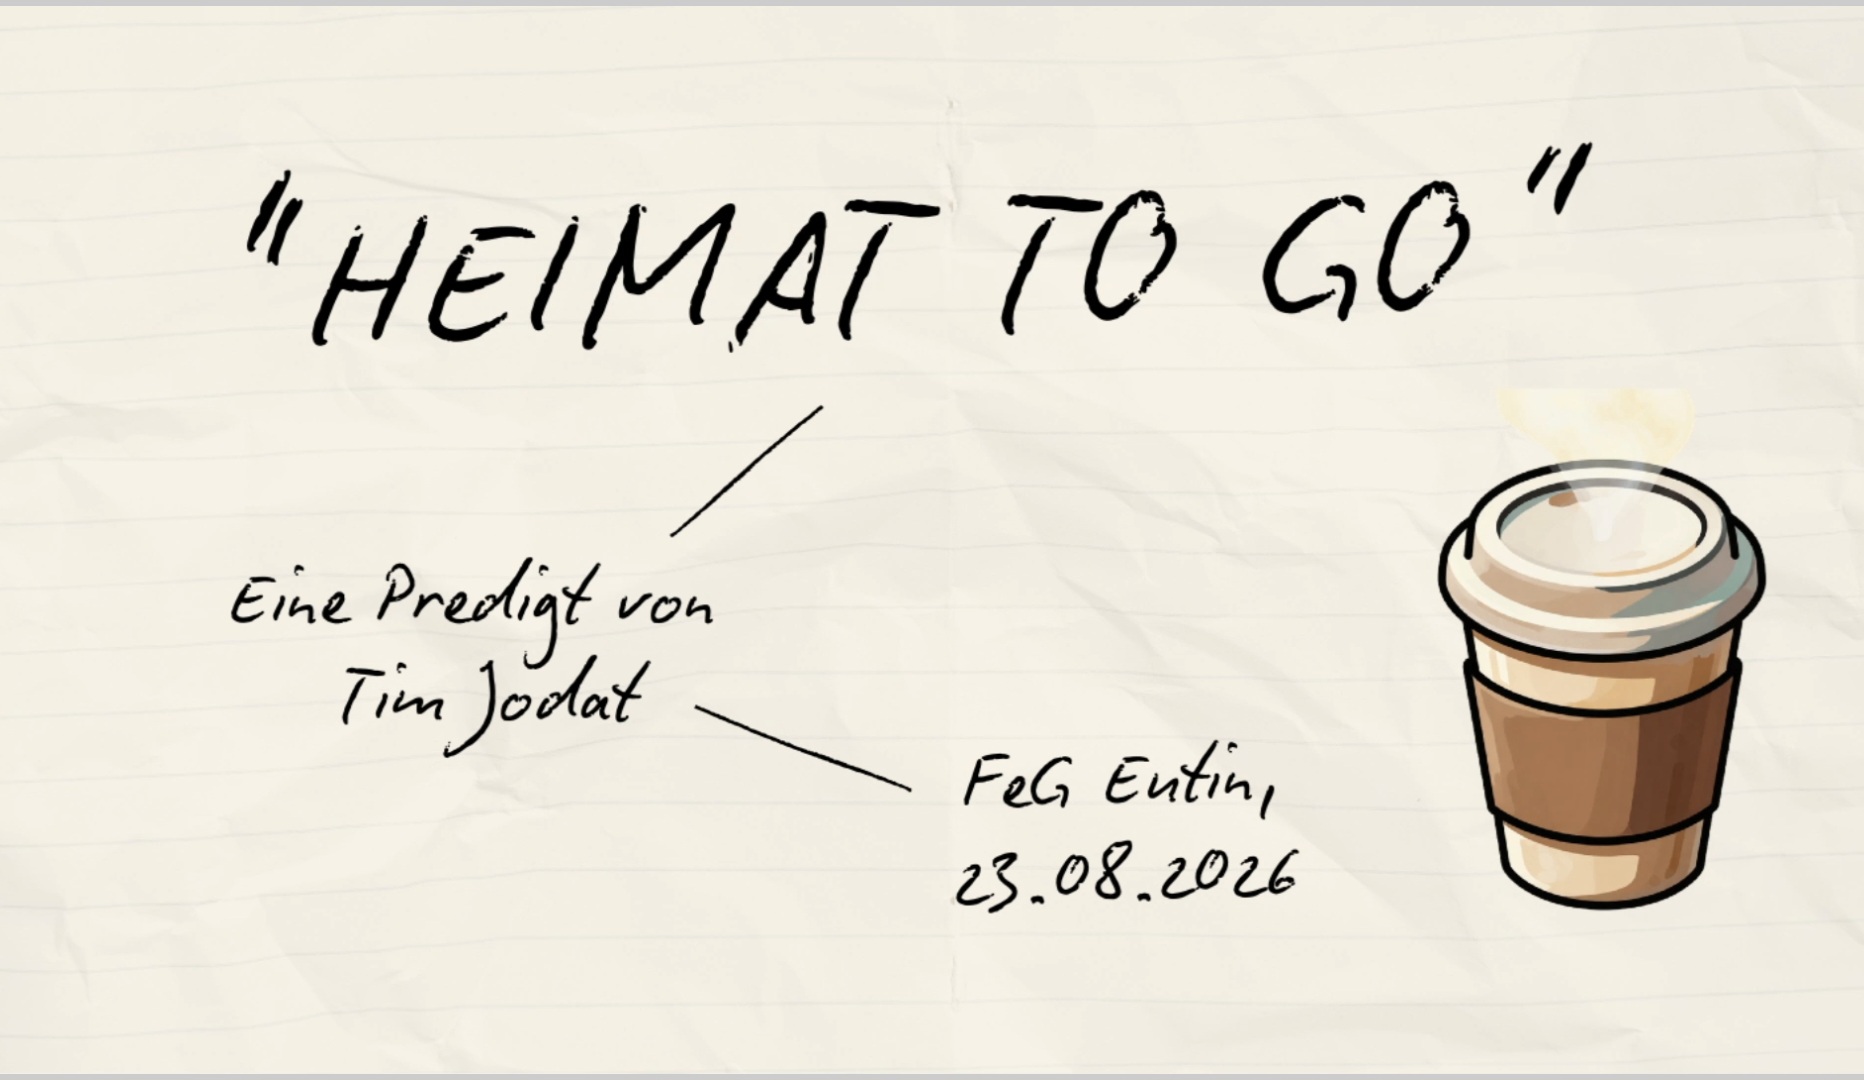 "HEIMAT TO GO"
Eine Predigt von
Tim Jodat
FeG Eutin,
23.08.2026